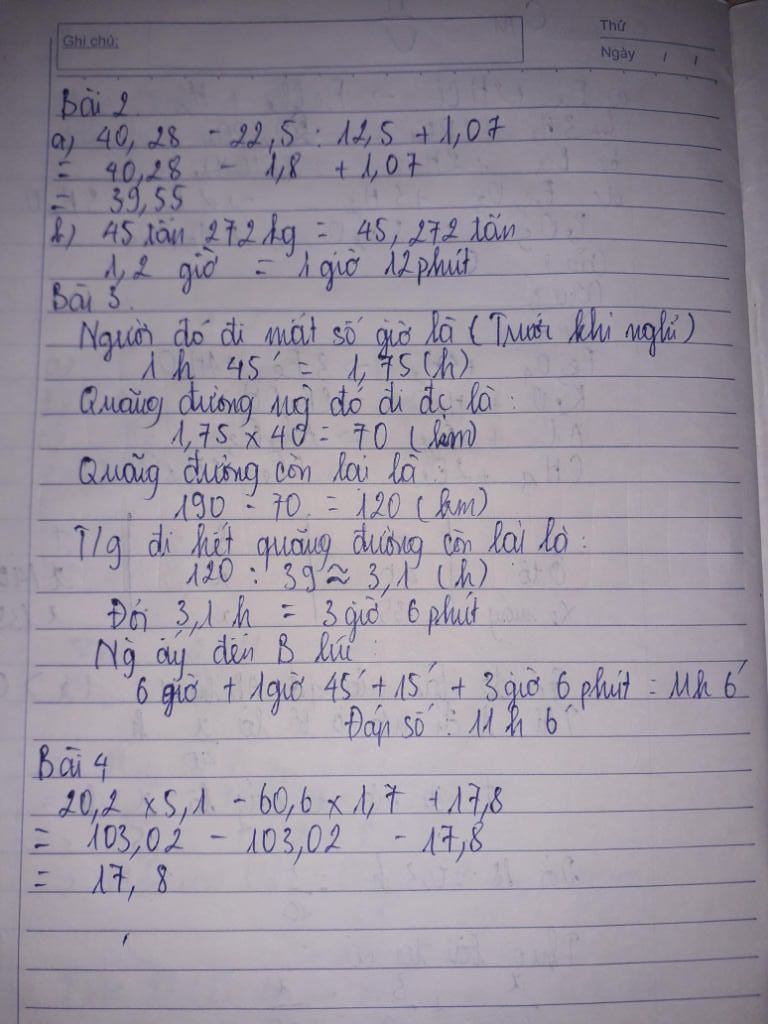 Ghi chú:
Thứ
Ngày / /
Bài 2
a, 40,28 - 22,5 : 12,5 + 1,07
= 40,28 - 1,8 + 1,07
= 39,55
b) 45 tấn 272 kg = 45,272 tấn
1,2 giờ = 1 giờ 12 phút
Bài 3.
Người đó đi mất số giờ là (Trước khi nghỉ)
1 h 45' = 1,75 (h)
Quãng đường ng đó đi đc là:
1,75 x 40 = 70 (km)
Quãng đường còn lại là:
190 - 70 = 120 (km)
T/g đi hết quãng đường còn lại là:
120 : 39 ≈ 3,1 (h)
Đổi 3,1 h = 3 giờ 6 phút
Ng ấy đến B lúc:
6 giờ + 1 giờ 45' + 15' + 3 giờ 6 phút = 11h 6'
Đáp số: 11 h 6'
Bài 4
20,2 x 5,1 - 60,6 x 1,7 + 17,8
= 103,02 - 103,02 - 17,8
= 17,8